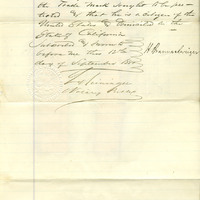 the Trade Mark sought to be pro-
tected & that he is a citizen of the
United States & domiciled in the
State of California
Subscribed & sworn to
before me this 12th
day of September
Notary Public